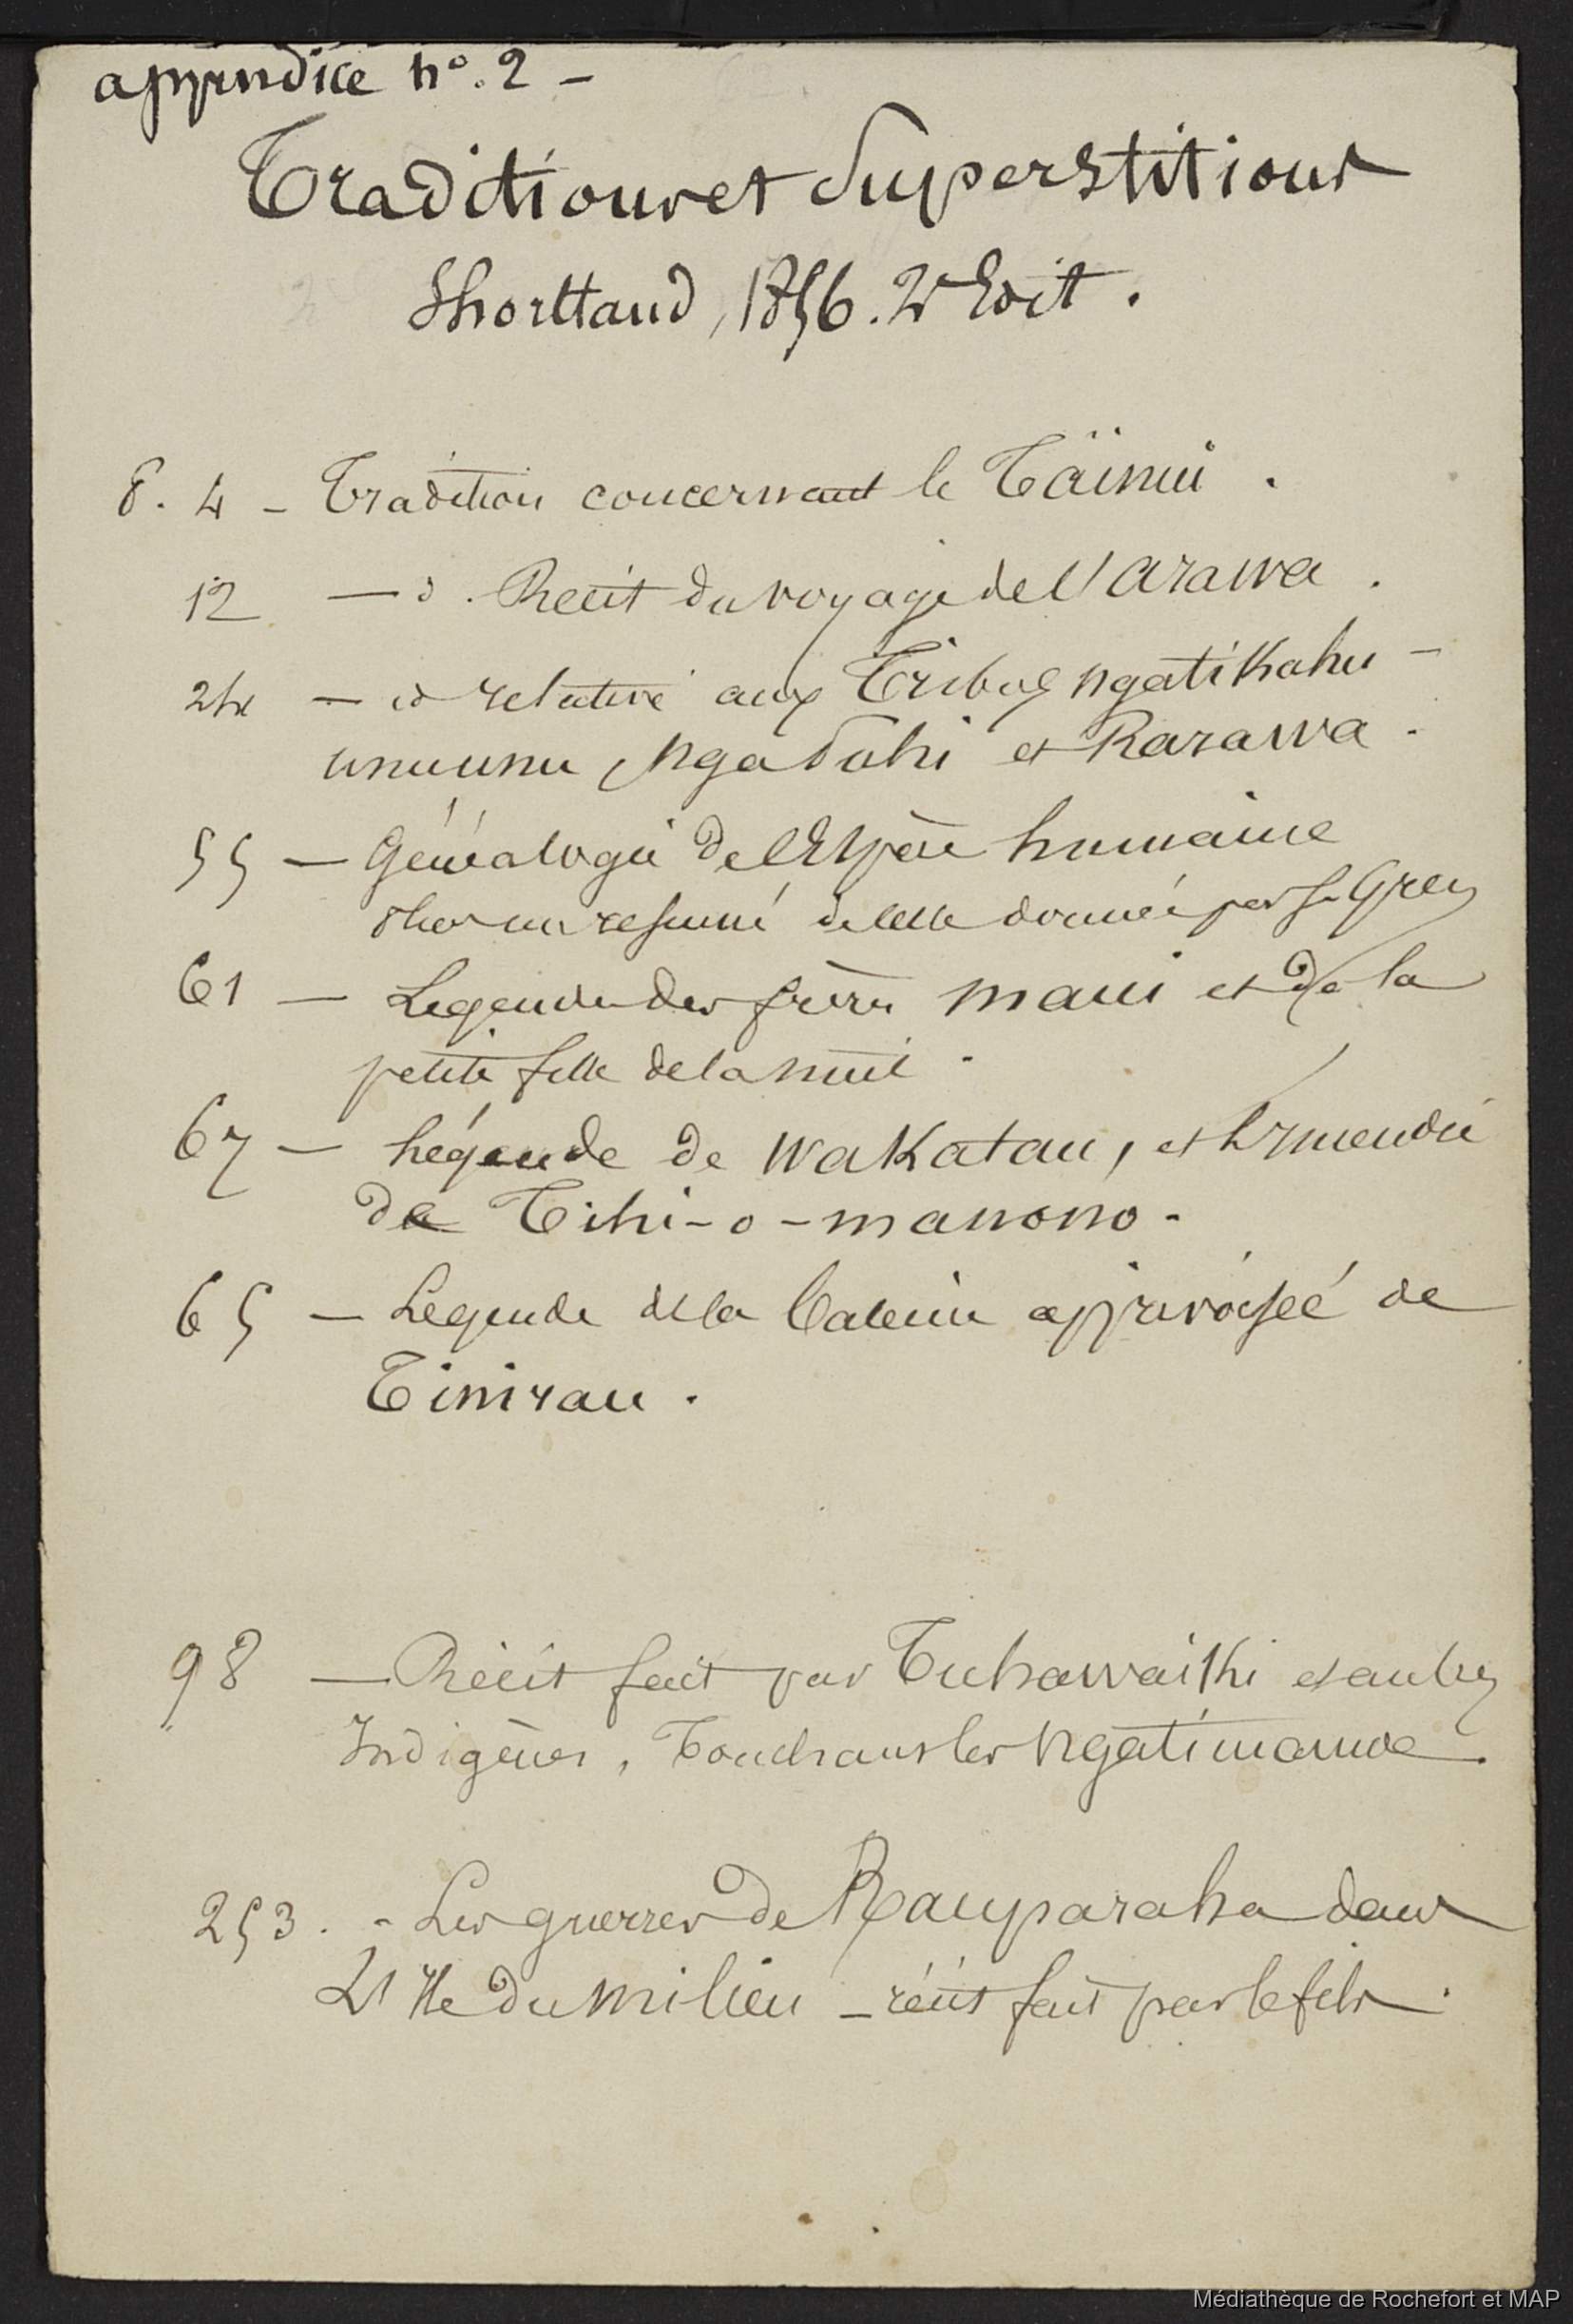 appendice n°. 2 –
Traditions et Superstitions
Shorttand, 1856. 2d Edit.
P. 4 – Tradition concernant le Täinui.
12 — d. Recit du voyage de l'Arawa.
24 — id relative aux Tribus Ngatikahu –
unuunu, Nga Puhi et Rarawa.
55 — Généalogie de l'Espèce humaine
un resumé de celle donnée par Sr Grey
61 — Legende des frères Maui et de la
petite fille de la nuit.
67 — Légende de Wakatau, et Incendie
de Tihi-o-manono.
65 — Legende de la Baleine apprivoisée de
Tinirau.
98 — Récit fait par Tuhawaiki et autres
Indigènes, touchant les Ngatimamoe.
253. - Les guerres de Rauparaha dans
L'Ile du Milieu – récit fait par le fils.
Médiathèque de Rochefort et MAP